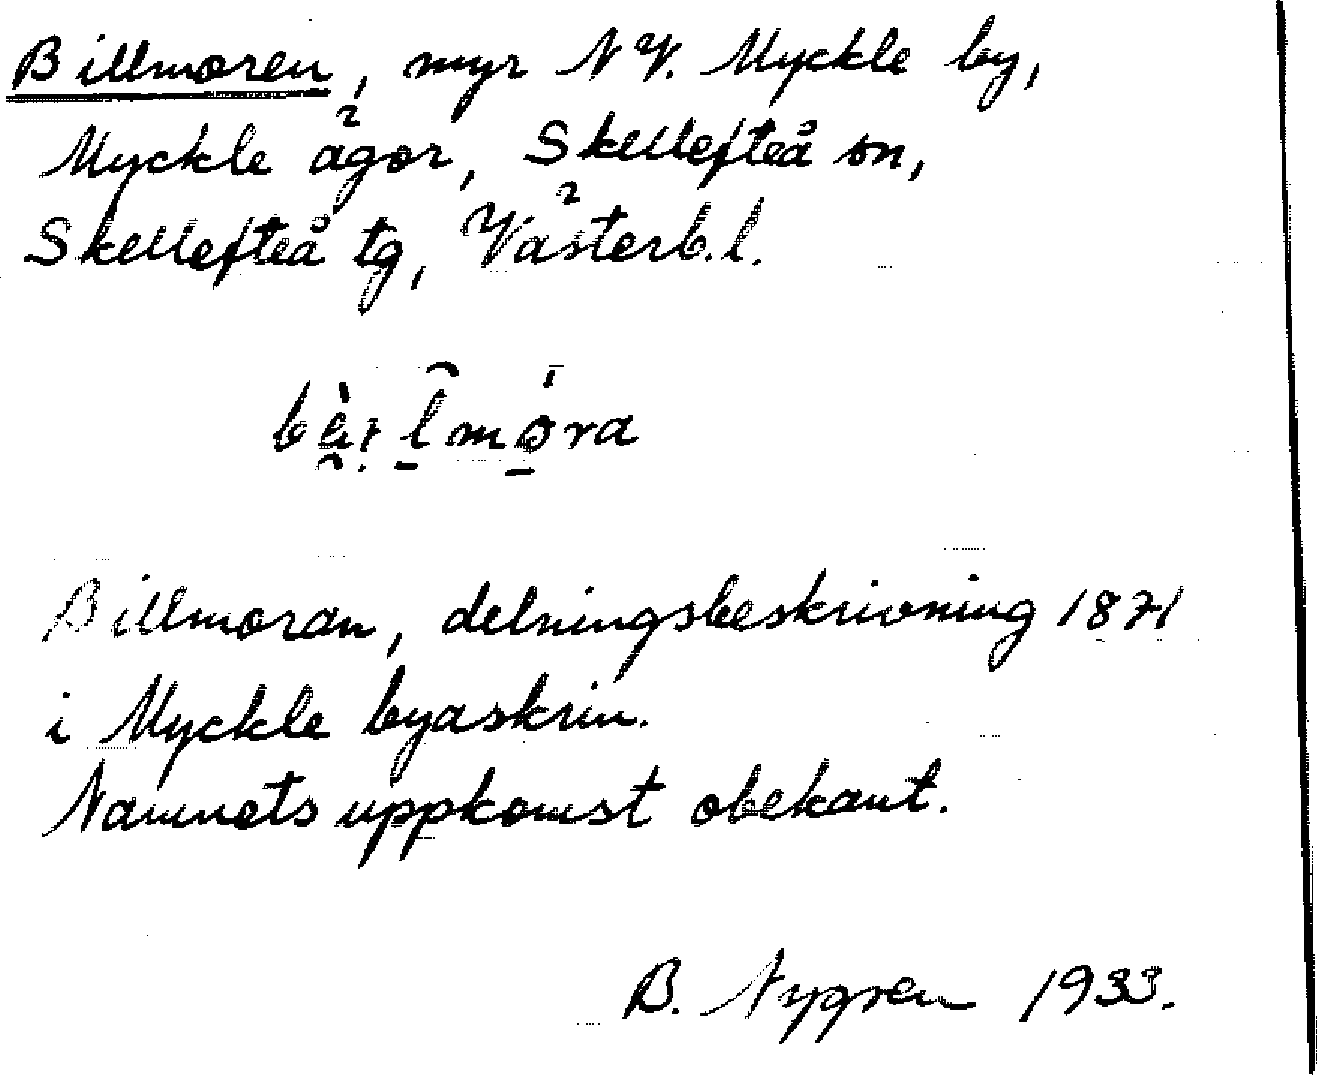 Billmoren, myr NV. Myckle by,
Myckle ägor, Skellefteå sn,
Skellefteå tg, Västerb.l.
Billmoran, delningsbeskrivning 1871
i Myckle byaskrin.
Namnets uppkomst obekant.
B. Nygren 1933.